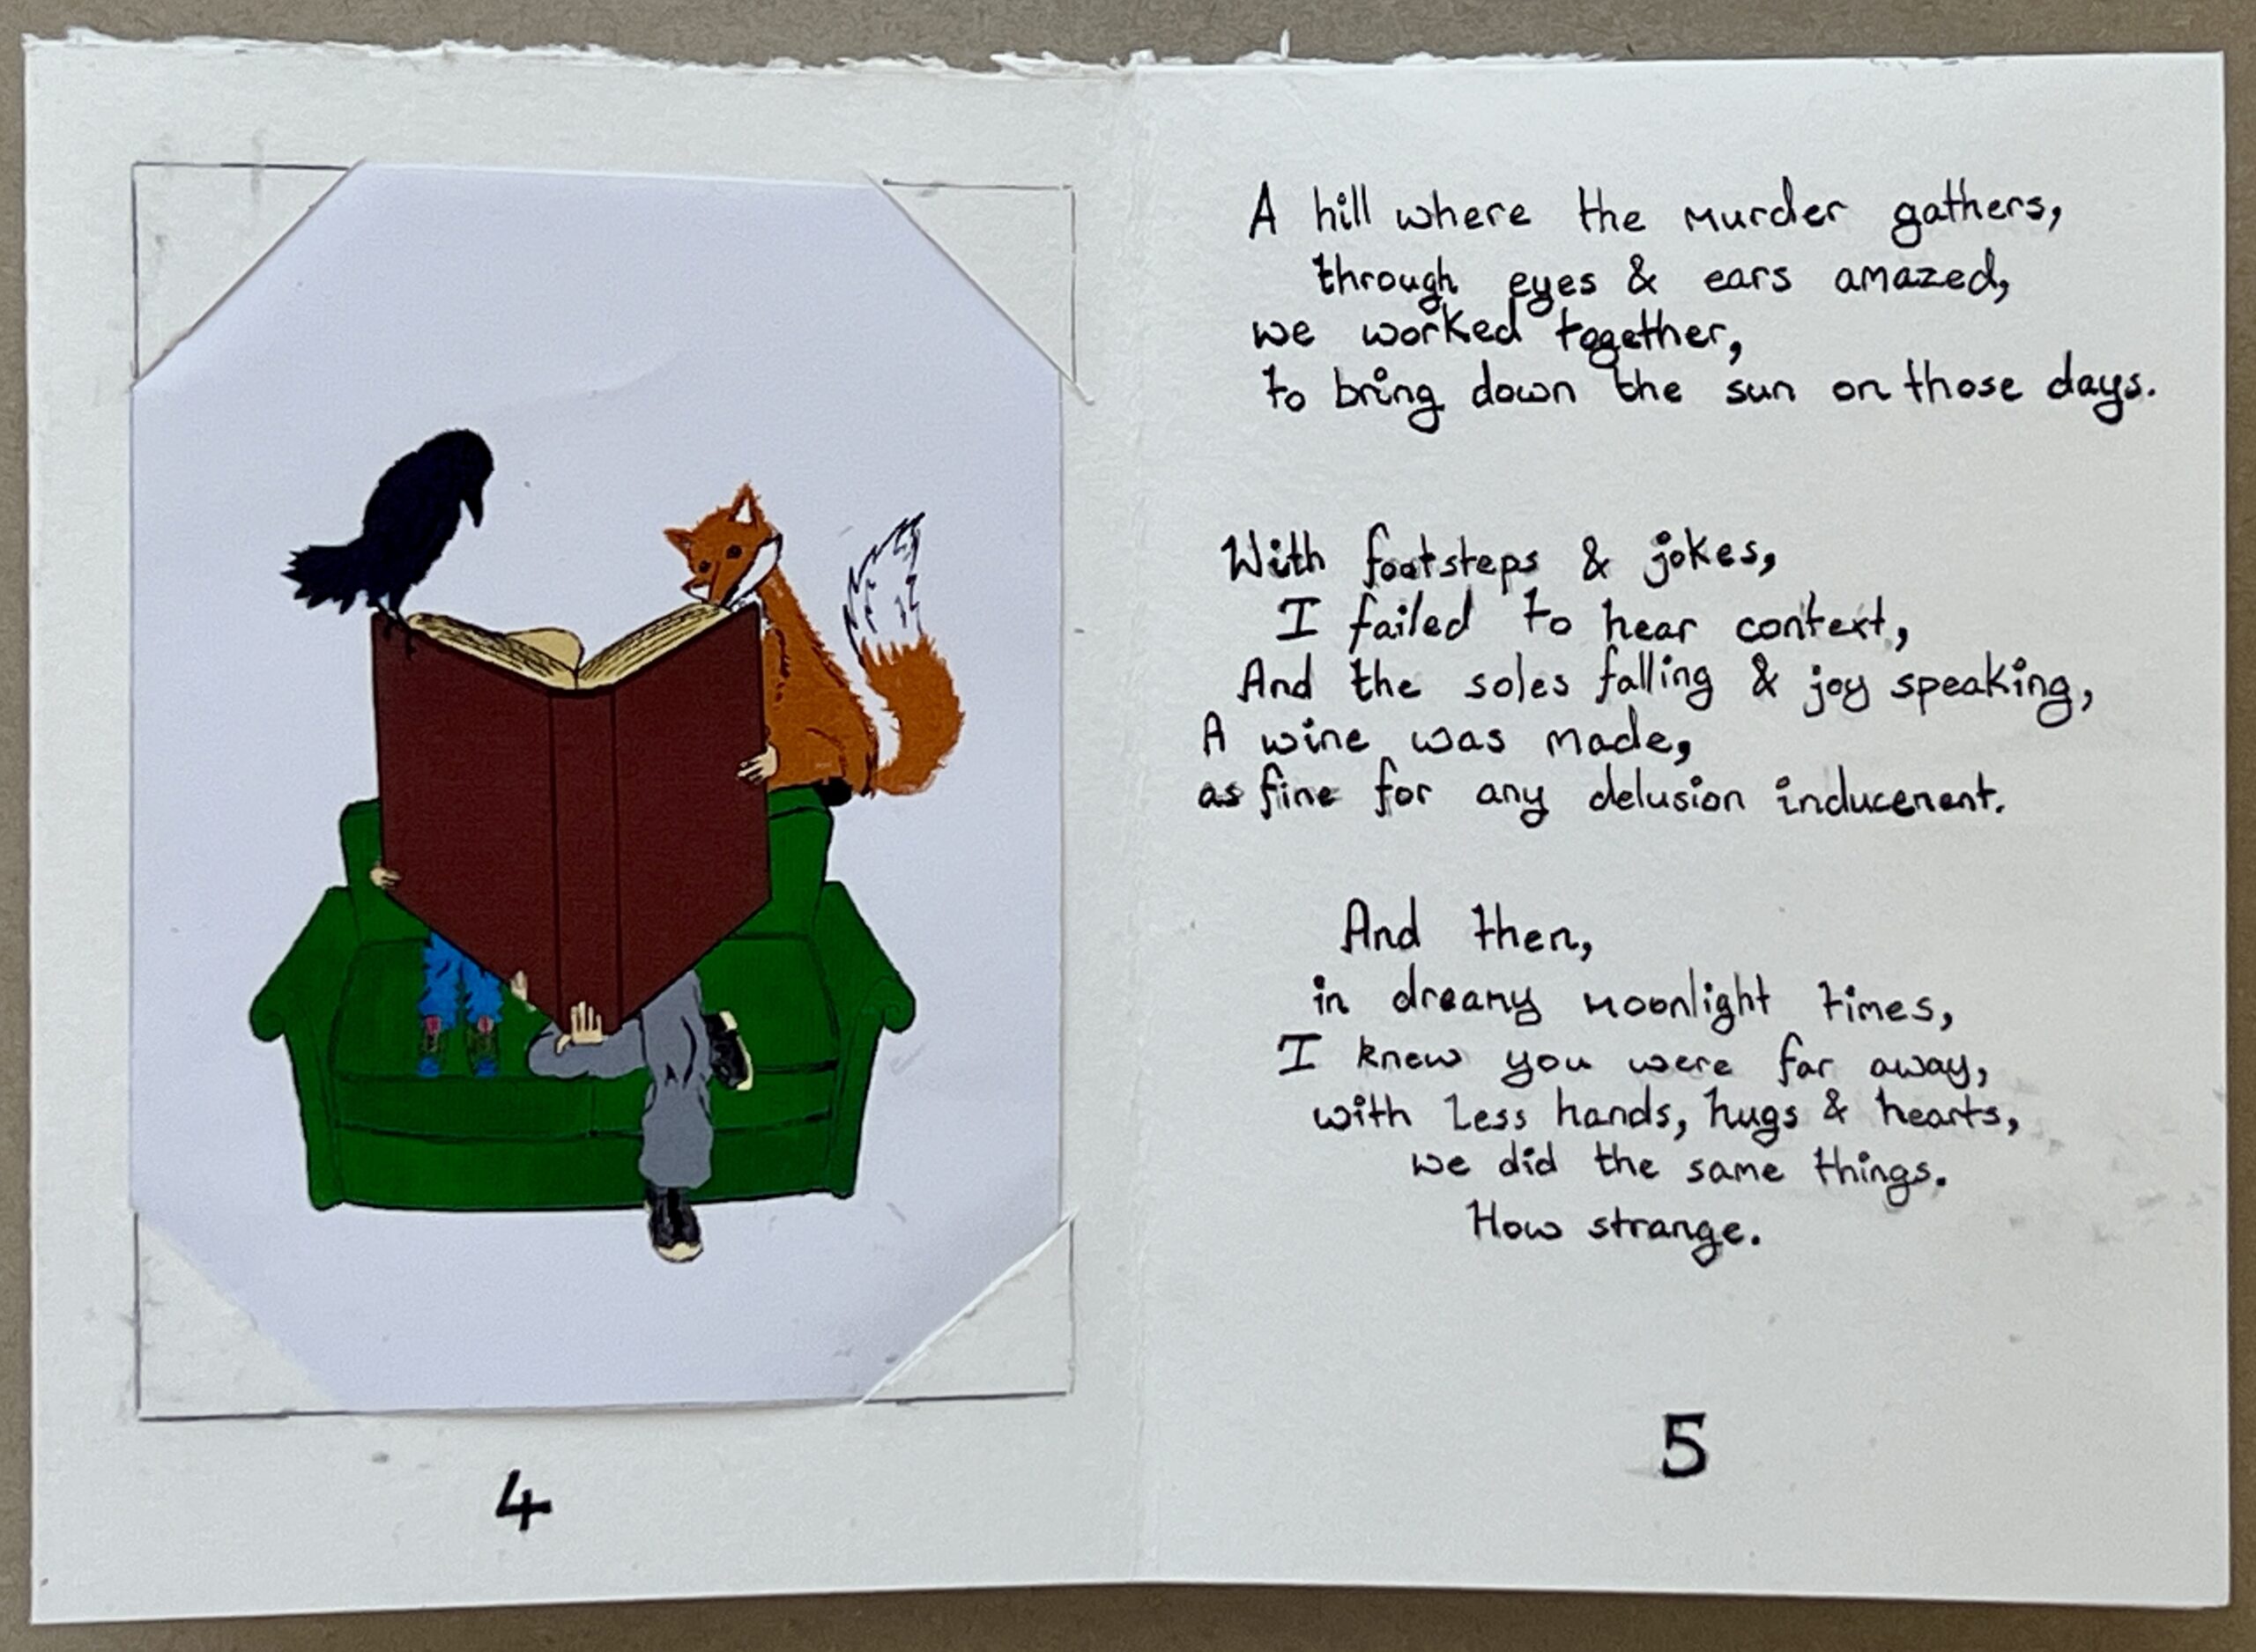 A hill where the murder gathers,
through eyes & ears amazed,
we worked together,
to bring down the sun on those days.
With footsteps & jokes,
I failed to hear context,
And the soles falling & joy speaking,
A wine was made,
as fine for any delusion inducement.
And then,
in dreamy moonlight times,
I knew you were far away,
with less hands, hugs & hearts,
we did the same things.
How strange.
4
5